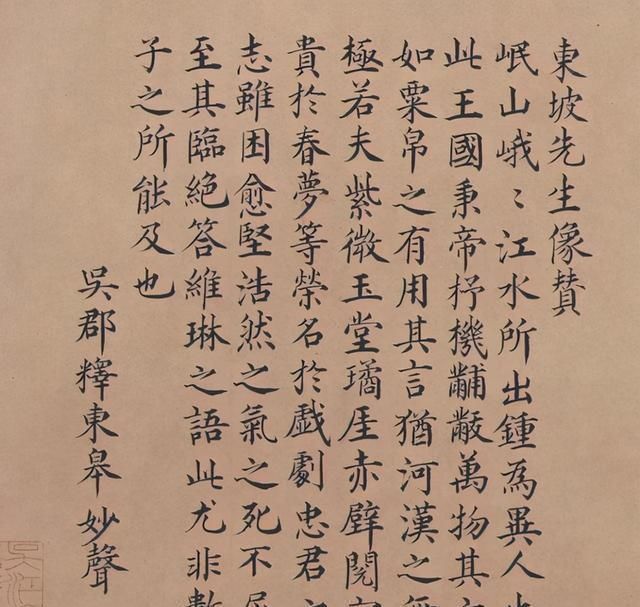 東坡先生像贊
岷山峨〻江水所出鍾為異人
此王國秉帝杼機黼黻萬物其
如粟帛之有用其言猶河漢之無
極若夫紫微玉堂瓊崖赤壁閱
貴於春夢等榮名於戲劇忠君之
志雖困愈堅浩然之氣之死不屈
至其臨絶答維琳之語此尤非數
子之所能及也
吳郡釋東皋妙聲